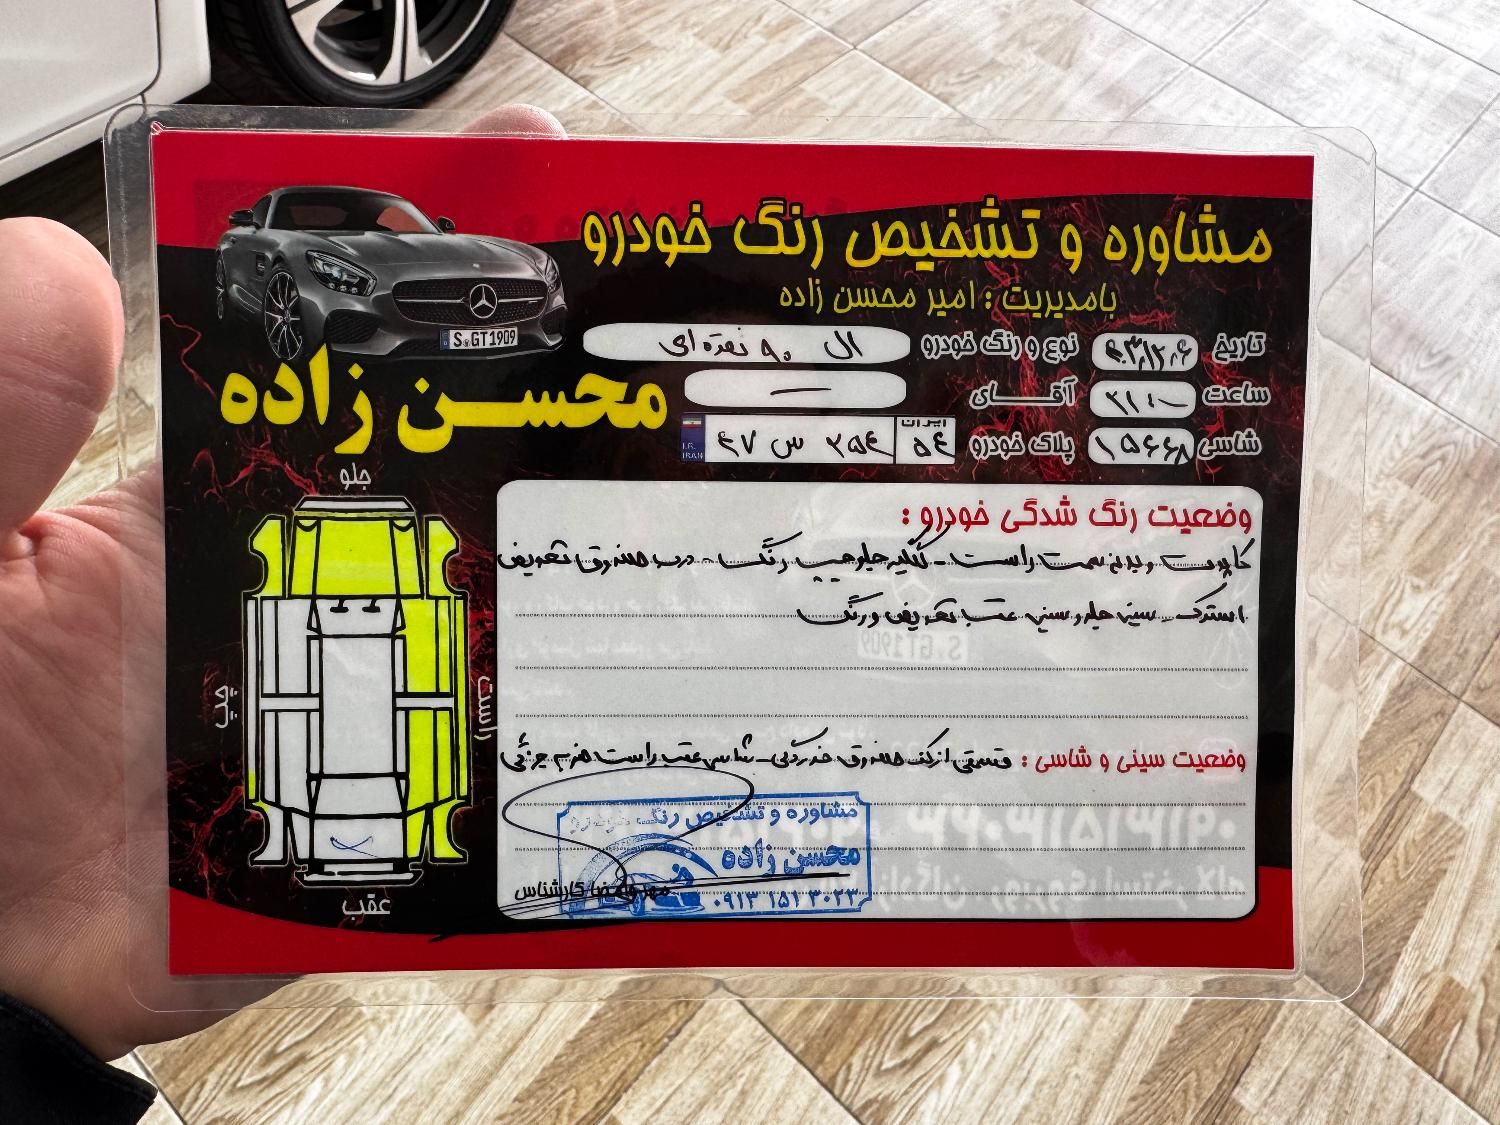 مشاوره و تشخیص رنگ خودرو
بامدیریت : امیر محسن زاده
تاریخ ۴۰۳/۱۲/۶ نوع و رنگ خودرو ال ۹۰ نقره‌ای
ساعت ۲۱:۰۰ آقــای —
شاسی ۱۵۶۶۸ پلاک خودرو ایران ۵۴ ۴۷ س ۲۵۴ I.R. IRAN
S GT1909
محســن زاده
جلو
چپ
راست
عقب
وضعیت رنگ شدگی خودرو :
کاپوت و بدنه سمت راست - گلگیر جلو چپ رنگ - درب صندوق تعویض
استوک - سینی جلو و سینی عقب تعویض و رنگ
وضعیت سینی و شاسی : قسمتی از کف صندوق خوردگی - شاسی عقب راست ضربه جزئی
مشاوره و تشخیص رنگ خودرو
محسن زاده
مهر و امضا کارشناس
۰۹۱۳ ۱۵۱ ۳۰۲۳